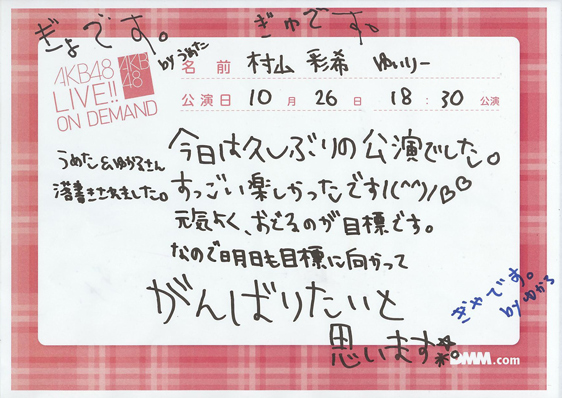 ぎょです。
ぎゅです。
by うめた
AKB48
LIVE!!
ON DEMAND
AKB
48
名 前 村山 彩希 ゆいりー
公演日 10 月 26 日 18 : 30 公演
うめたん&ゆかるさん
落書きされました。
今日は久しぶりの公演でした。
すっごい楽しかったです!(^^)/♡♡
元気よく、おどるのが目標です。
なので明日も目標に向かって
がんばりたいと
思います
ぎゃです。
by ゆかる
DMM.com